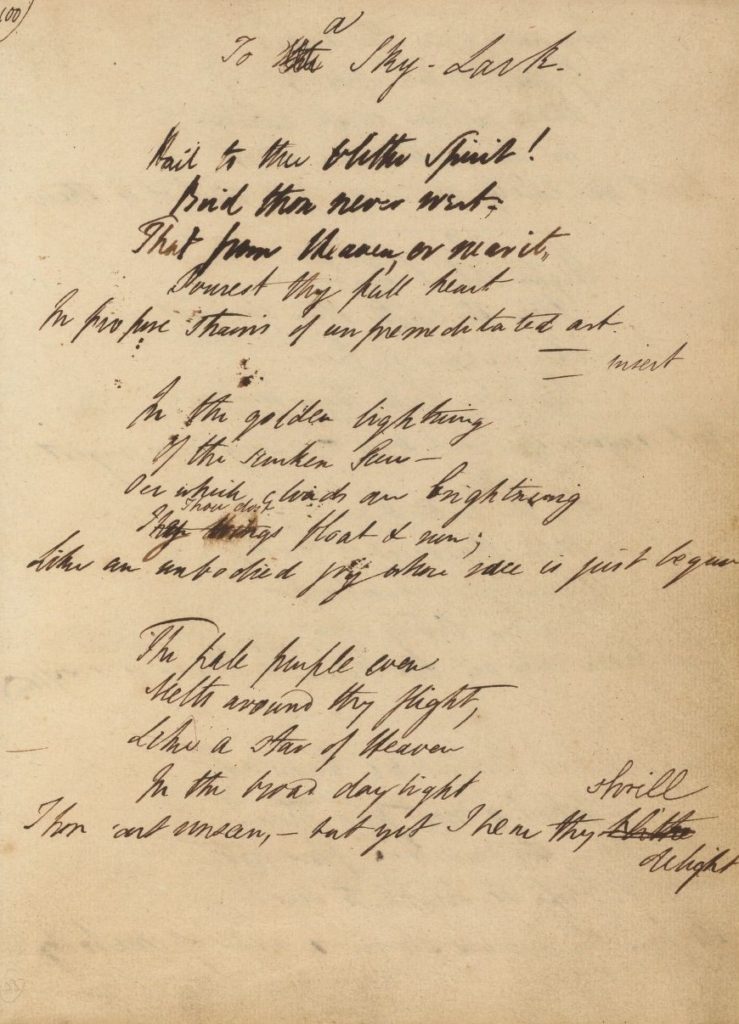 100)
To ~~the~~ a Sky-Lark.
Hail to thee blithe Spirit!
Bird thou never wert,
That from Heaven, or near it,
Pourest thy full heart
In profuse strains of unpremeditated art.
insert
In the golden lightning
Of the sunken Sun—
Oer which clouds are brightning
Thou dost
float & run;
Like an unbodied joy whose race is just begun
The pale purple even
Melts around thy flight,
Like a star of Heaven
In the broad daylight
shrill
Thou art unseen,— but yet I hear thy ~~blithe~~
delight